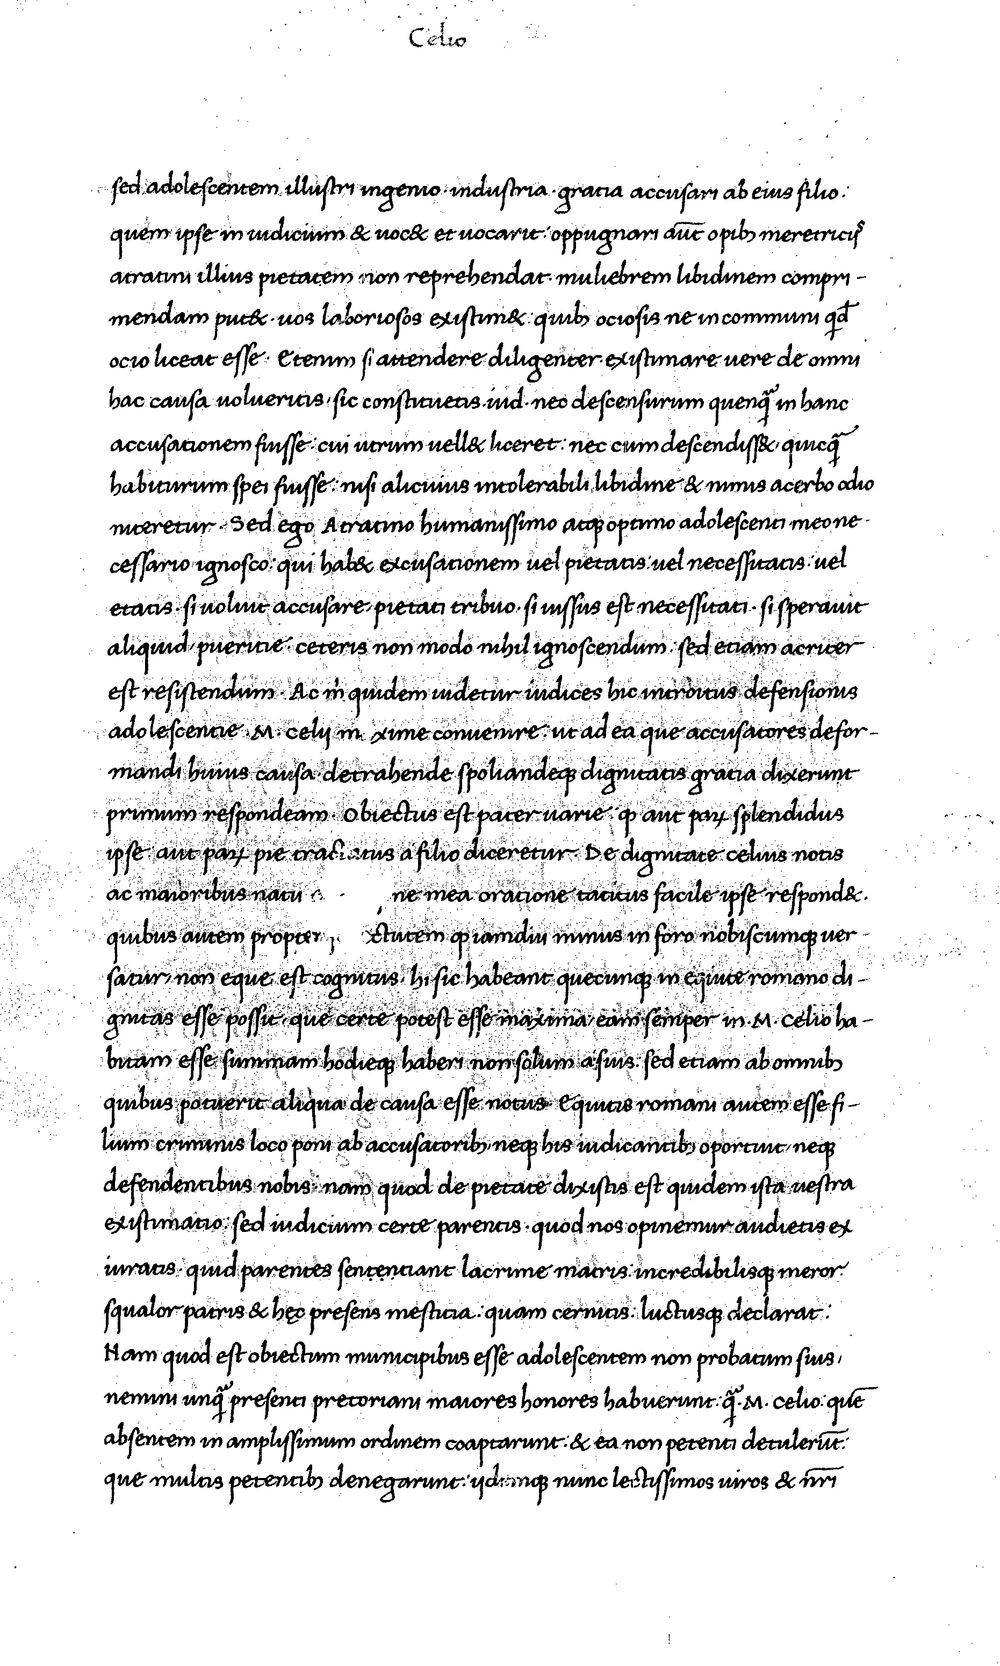 Celio
sed adolescentem illustri ingenio· industria· gratia accusari ab eius filio:
quem ipse in iudicium & uoc& et uocarit: oppugnari aūt opib; meretricijs
atratini illius pietatem non reprehendat· muliebrem libidinem compri-
mendam put&· uos laboriosos existim&· quib; ociosis ne in communi qd̄
ocio liceat esse· Etenim si attendere diligenter existimare uere de omni
hac causa uolueritis· sic constituetis· iud· nec descensurum quenq̄ in hanc
accusationem fuisse: cui utrum uell& liceret: nec cum descendiss& quicq̄
habiturum spei fuisse: nisi alicuius intolerabili libidine & nimis acerbo odio
niteretur· Sed ego Atratino humanissimo atq; optimo adolescenti meo ne-
cessario ignosco: qui hab& excusationem uel pietatis: uel necessitatis: uel
etatis· si uoluit accusare pietati tribuo· si iussus est necessitati· si sperauit
aliquid pueritie· ceteris non modo nihil ignoscendum· sed etiam acriter
est resistendum· Ac m̄ quidem uidetur iudices hic introitus defensionis
adolescentie M· celij m xime conuenire· ut ad ea que accusatores defor-
mandi huius causa detrahende spoliandeq; dignitatis gratia dixerunt
primum respondeam· Obiectus est pater uarie· q̄ aut paꝝ splendidus
ipse· aut paꝝ pie tractatus a filio diceretur· De dignitate celius notis
ac maioribus natu ne mea oratione tacitus facile ipse respond&·
quibus autem propter ctutem q̄ iamdiu minus in foro nobiscumq; uer-
satur· non eque est cognitus· hi sic habeant quecunq; in equite romano di-
gnitas esse possit· que certe potest esse maxima eam semper in M· Celio ha-
bitam esse summam hodieq; haberi non solum a suis· sed etiam ab omnib;
quibus potuerit aliqua de causa esse notus· Equitis romani autem esse fi-
lium criminis loco poni ab accusatorib; neq; his iudicantib; oportuit· neq;
defendentibus nobis· nam quod de pietate dixistis est quidem ista uestra
existimatio: sed iudicium certe parentis· quod nos opinemur audietis ex
iuratis· quid parentes sentiant lacrime matris incredibilisq; meror:
squalor patris & hęc presens mesticia· quam cernitis: luctusq; declarat:
Nam quod est obiectum municipibus esse adolescentem non probatum suis·
nemini unq̄ presenti pretoriani maiores honores habuerunt· q̄ M· Celio: quē
absentem in amplissimum ordinem coaptarunt· & ea non petenti detulerūt:
que multis petentib; denegarunt: ijdemq; nunc lectissimos uiros & nr̄i